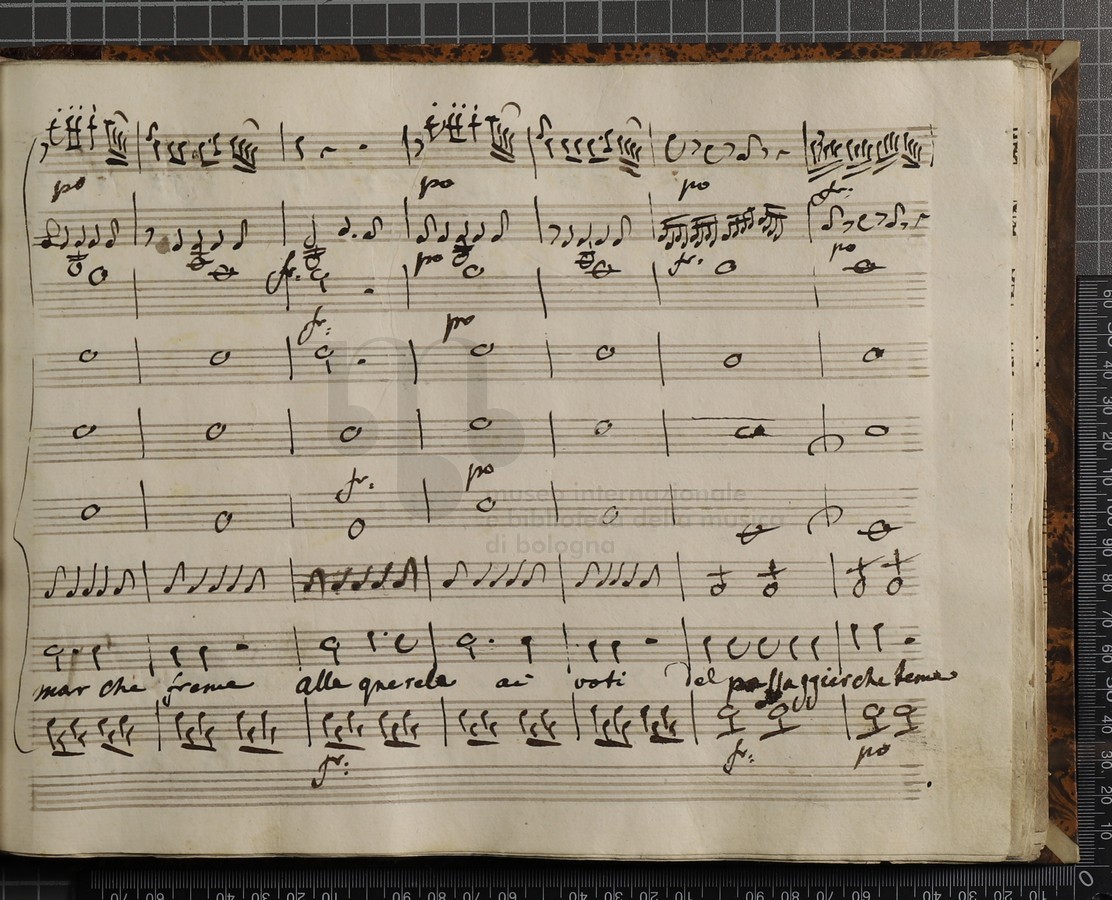 po po po fr:
po fr: po
fr:
fr: po
fr. po
mar che freme alle querele ai voti del passaggier che teme
fr: fr: po
museo internazionale
e biblioteca della musica
di bologna